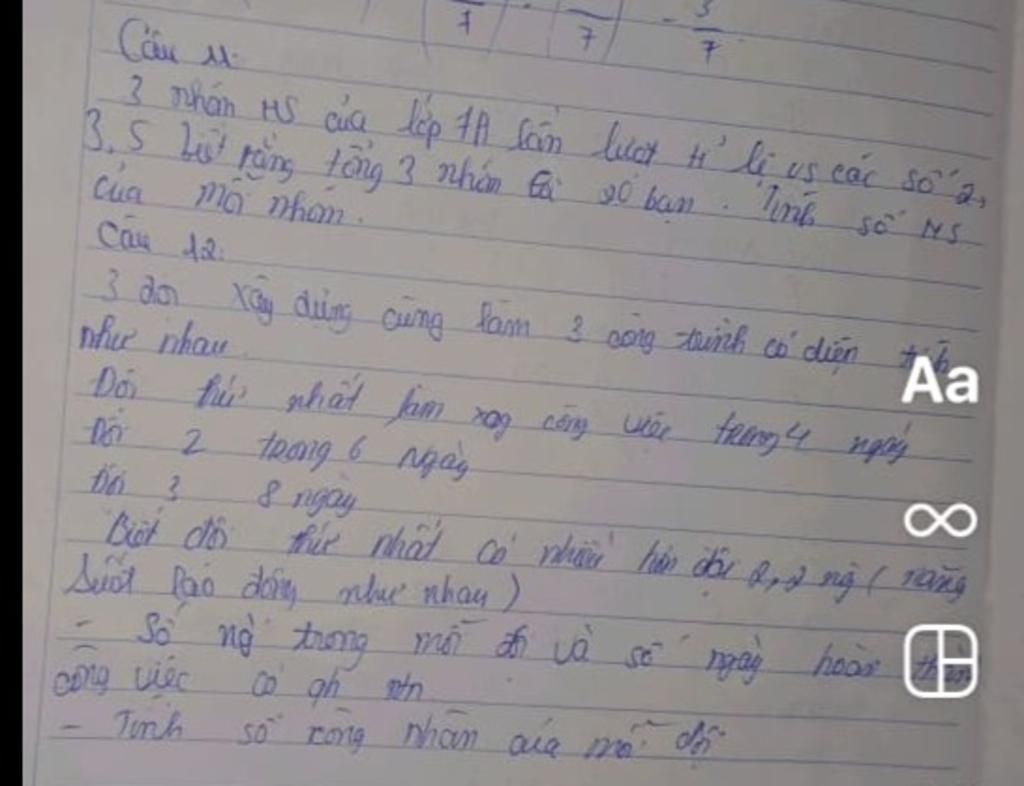 7 7 - 5/7
Câu 11:
3 nhóm HS của lớp 7A lần lượt tỉ lệ vs các số 2,
3, 5 biết rằng tổng 3 nhóm là 20 bạn. Tính số HS
của mỗi nhóm.
Câu 12:
3 đội xây dựng cùng làm 3 công trình có diện tích
như nhau.
Đội thứ nhất làm xog công việc trong 4 ngày
Đội 2 trong 6 ngày
Đội 3 8 ngày
Biết đội thứ nhất có nhiều hơn đội 2, 2 ng (năng
suất lao động như nhau)
- Số ng trong mỗi đội và số ngày hoàn thành
công việc có qh ntn
- Tính số công nhân của mỗi đội
Aa